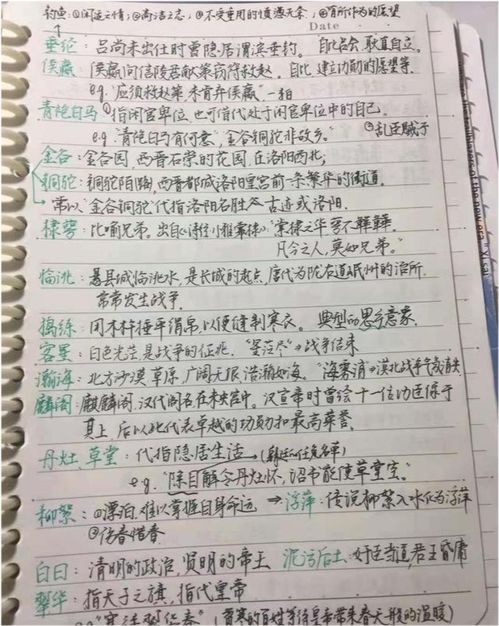 钓鱼：①闲适之情；②高洁之志；③不受重用的愤懑无奈；④有所作为的愿望
Date
垂纶：吕尚未出仕时曾隐居渭滨垂钓。自比吕尚，
侯嬴：侯嬴向信陵君献策窃符救赵，自比，建立功勋的愿望等
e.g. "应须救赵策，未肯弃侯嬴。"一相
青袍白马：①指闲官卑位，也可借代处于闲官卑位中的自己。
e.g. "青袍白马有何意，金谷铜驼非故乡。" ②乱臣贼子
金谷：金谷园，西晋石崇的花园，在洛阳西北；
铜驼：铜驼陌，西晋都城洛阳皇宫前一条繁华的街道，
常以"金谷铜驼"代指洛阳名胜古迹或洛阳。
棣萼：比喻兄弟。出自《诗经·小雅·棠棣》"棠棣之华，鄂不韡韡，
凡今之人，莫如兄弟。"
临洮：县城临洮水，是长城的起点，唐代为陇右道岷州的治所，
常常发生战争
捣练：用木杵捶平绢帛，以便缝制寒衣。典型的思乡意象。
客星：白色光芒，是战争的征兆，"星芒尽"→战争结束
瀚海：北方沙漠，草原，广阔无垠，浩瀚如海。"海雾消"→漠北战争气氛消失
麟阁：麒麟阁，汉代阁名，在未央宫中。汉宣帝时曾绘十一位功臣像于
其上，后以此代表卓越的功勋和最高荣誉
丹灶，草堂：代指隐居生活
e.g. "除目解令丹灶怀，诏书能使草堂空。"
柳絮：①漂泊，难以掌握自身命运 → 浮萍：传说柳絮入水化为浮萍
②伤春惜春
白日：清明的政治，贤明的帝王 泥污后土：奸臣当道，君王昏庸
翠华：指天子之旗，指代皇帝